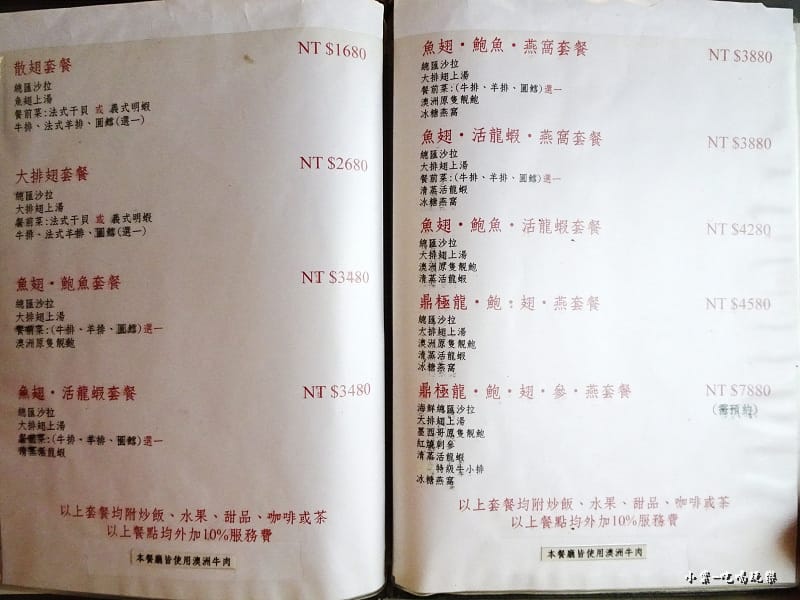 散翅套餐 NT $1680
總匯沙拉
魚翅上湯
餐前菜:法式干貝 或 義式明蝦
牛排、法式羊排、圓鱈(選一)
大排翅套餐 NT $2680
總匯沙拉
大排翅上湯
餐前菜:法式干貝 或 義式明蝦
牛排、法式羊排、圓鱈(選一)
魚翅·鮑魚套餐 NT $3480
總匯沙拉
大排翅上湯
餐前菜:(牛排、羊排、圓鱈)選一
澳洲原隻靚鮑
魚翅·活龍蝦套餐 NT $3480
總匯沙拉
大排翅上湯
餐前菜:(牛排、羊排、圓鱈)選一
清蒸活龍蝦
以上套餐均附炒飯、水果、甜品、咖啡或茶
以上餐點均外加10%服務費
本餐廳皆使用澳洲牛肉
魚翅·鮑魚·燕窩套餐 NT $3880
總匯沙拉
大排翅上湯
餐前菜:(牛排、羊排、圓鱈)選一
澳洲原隻靚鮑
冰糖燕窩
魚翅·活龍蝦·燕窩套餐 NT $3880
總匯沙拉
大排翅上湯
餐前菜:(牛排、羊排、圓鱈)選一
清蒸活龍蝦
冰糖燕窩
魚翅·鮑魚·活龍蝦套餐 NT $4280
總匯沙拉
大排翅上湯
澳洲原隻靚鮑
清蒸活龍蝦
鼎極龍·鮑·翅·燕套餐 NT $4580
總匯沙拉
大排翅上湯
澳洲原隻靚鮑
清蒸活龍蝦
冰糖燕窩
鼎極龍·鮑·翅·參·燕套餐 NT $7880
(需預約)
海鮮總匯沙拉
大排翅上湯
墨西哥原隻靚鮑
紅燒刺參
清蒸活龍蝦
特級牛小排
冰糖燕窩
以上套餐均附炒飯、水果、甜品、咖啡或茶
以上餐點均外加10%服務費
本餐廳皆使用澳洲牛肉
小紫-吃喝玩樂